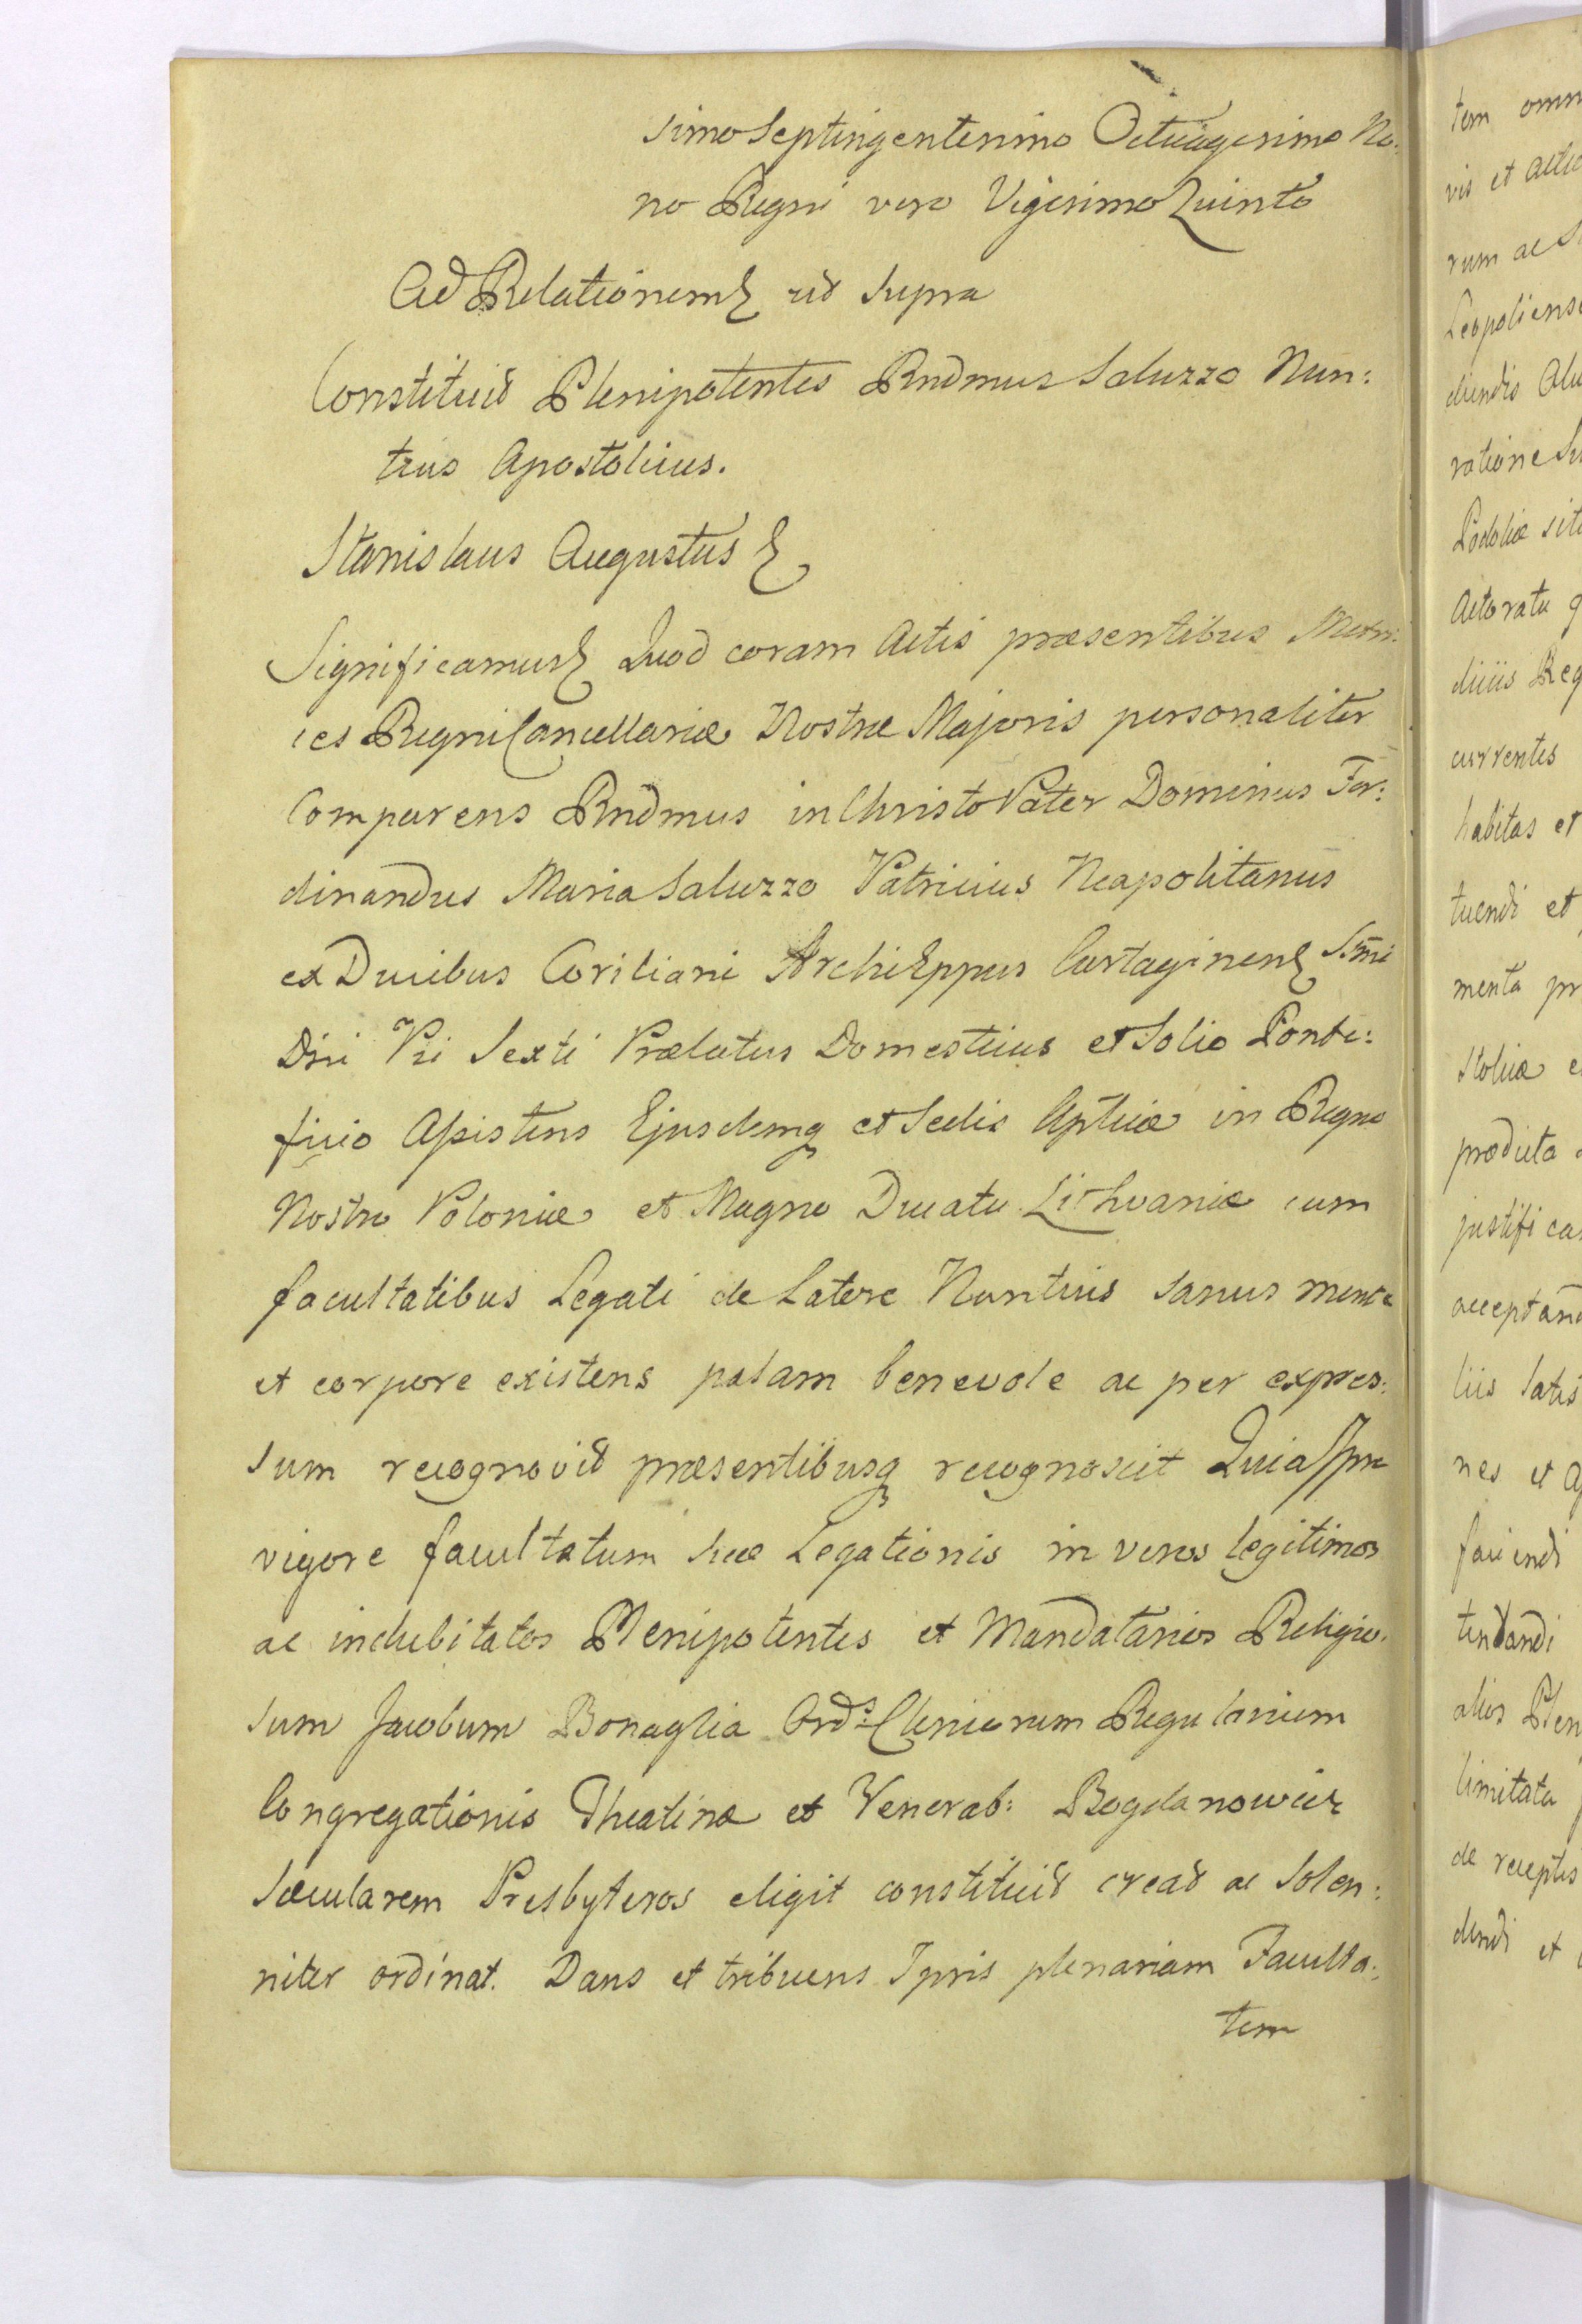 simo Septingentesimo Octuagesimo No:
no Regni vero Vigesimo Quinto
Ad Relationem& ut supra
Constituit Plenipotentes Rndmus Saluzzo Nun:
tius Apostolicus.
Stanislaus Augustus &
Significamus& Quod coram Actis præsentibus Metri:
ces Regni Cancellariæ Nostræ Majoris personaliter
Comparens Rndmus in Christo Pater Dominus Fer:
dinandus Maria Saluzzo Patricius Neapolitanus
ex Ducibus Coriliani ArchiEppus Cartaginen& Smi
Dni Pii Sexti Prælatus Domesticus et Solio Ponti:
ficio Assistens Ejusdemq et Sedis Aplicæ in Regno
Nostro Poloniæ et Magno Ducatu Lithvaniæ cum
facultatibus Legati de Latere Nuntius sanus mente
et corpore existens palam benevole ac per expres:
sum recognovit præsentibusq recognoscit Quia Ipse
vigore facultatum suæ Legationis in veros legitimos
ac indubitatos Plenipotentes et Mandatarios Religio:
sum Jacobum Bonaglia Ords Clericorum Regularium
Congregationis Theatinæ et Venerab: Bogdanowicz
Sæcularem Presbyteros eligit constituit creat ac Solen:
niter ordinat. Dans et tribuens Ipsis plenariam Faculta:
tem
tem omn
vis et actio
rum ac
Leopoliens
diendis
ratione
Podoliæ sit
Actoratu q
diciis Reg
currentes
habitas et
tuendi et
menta pr
stolicæ e
producta
justifica
acceptand
liis satis
nes et
faciendi
tentandi
alios Plen
limitata
de receptis
dendi et